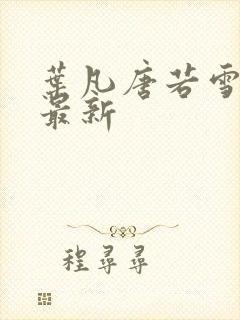 葉凡唐若雪
最新
程尋尋